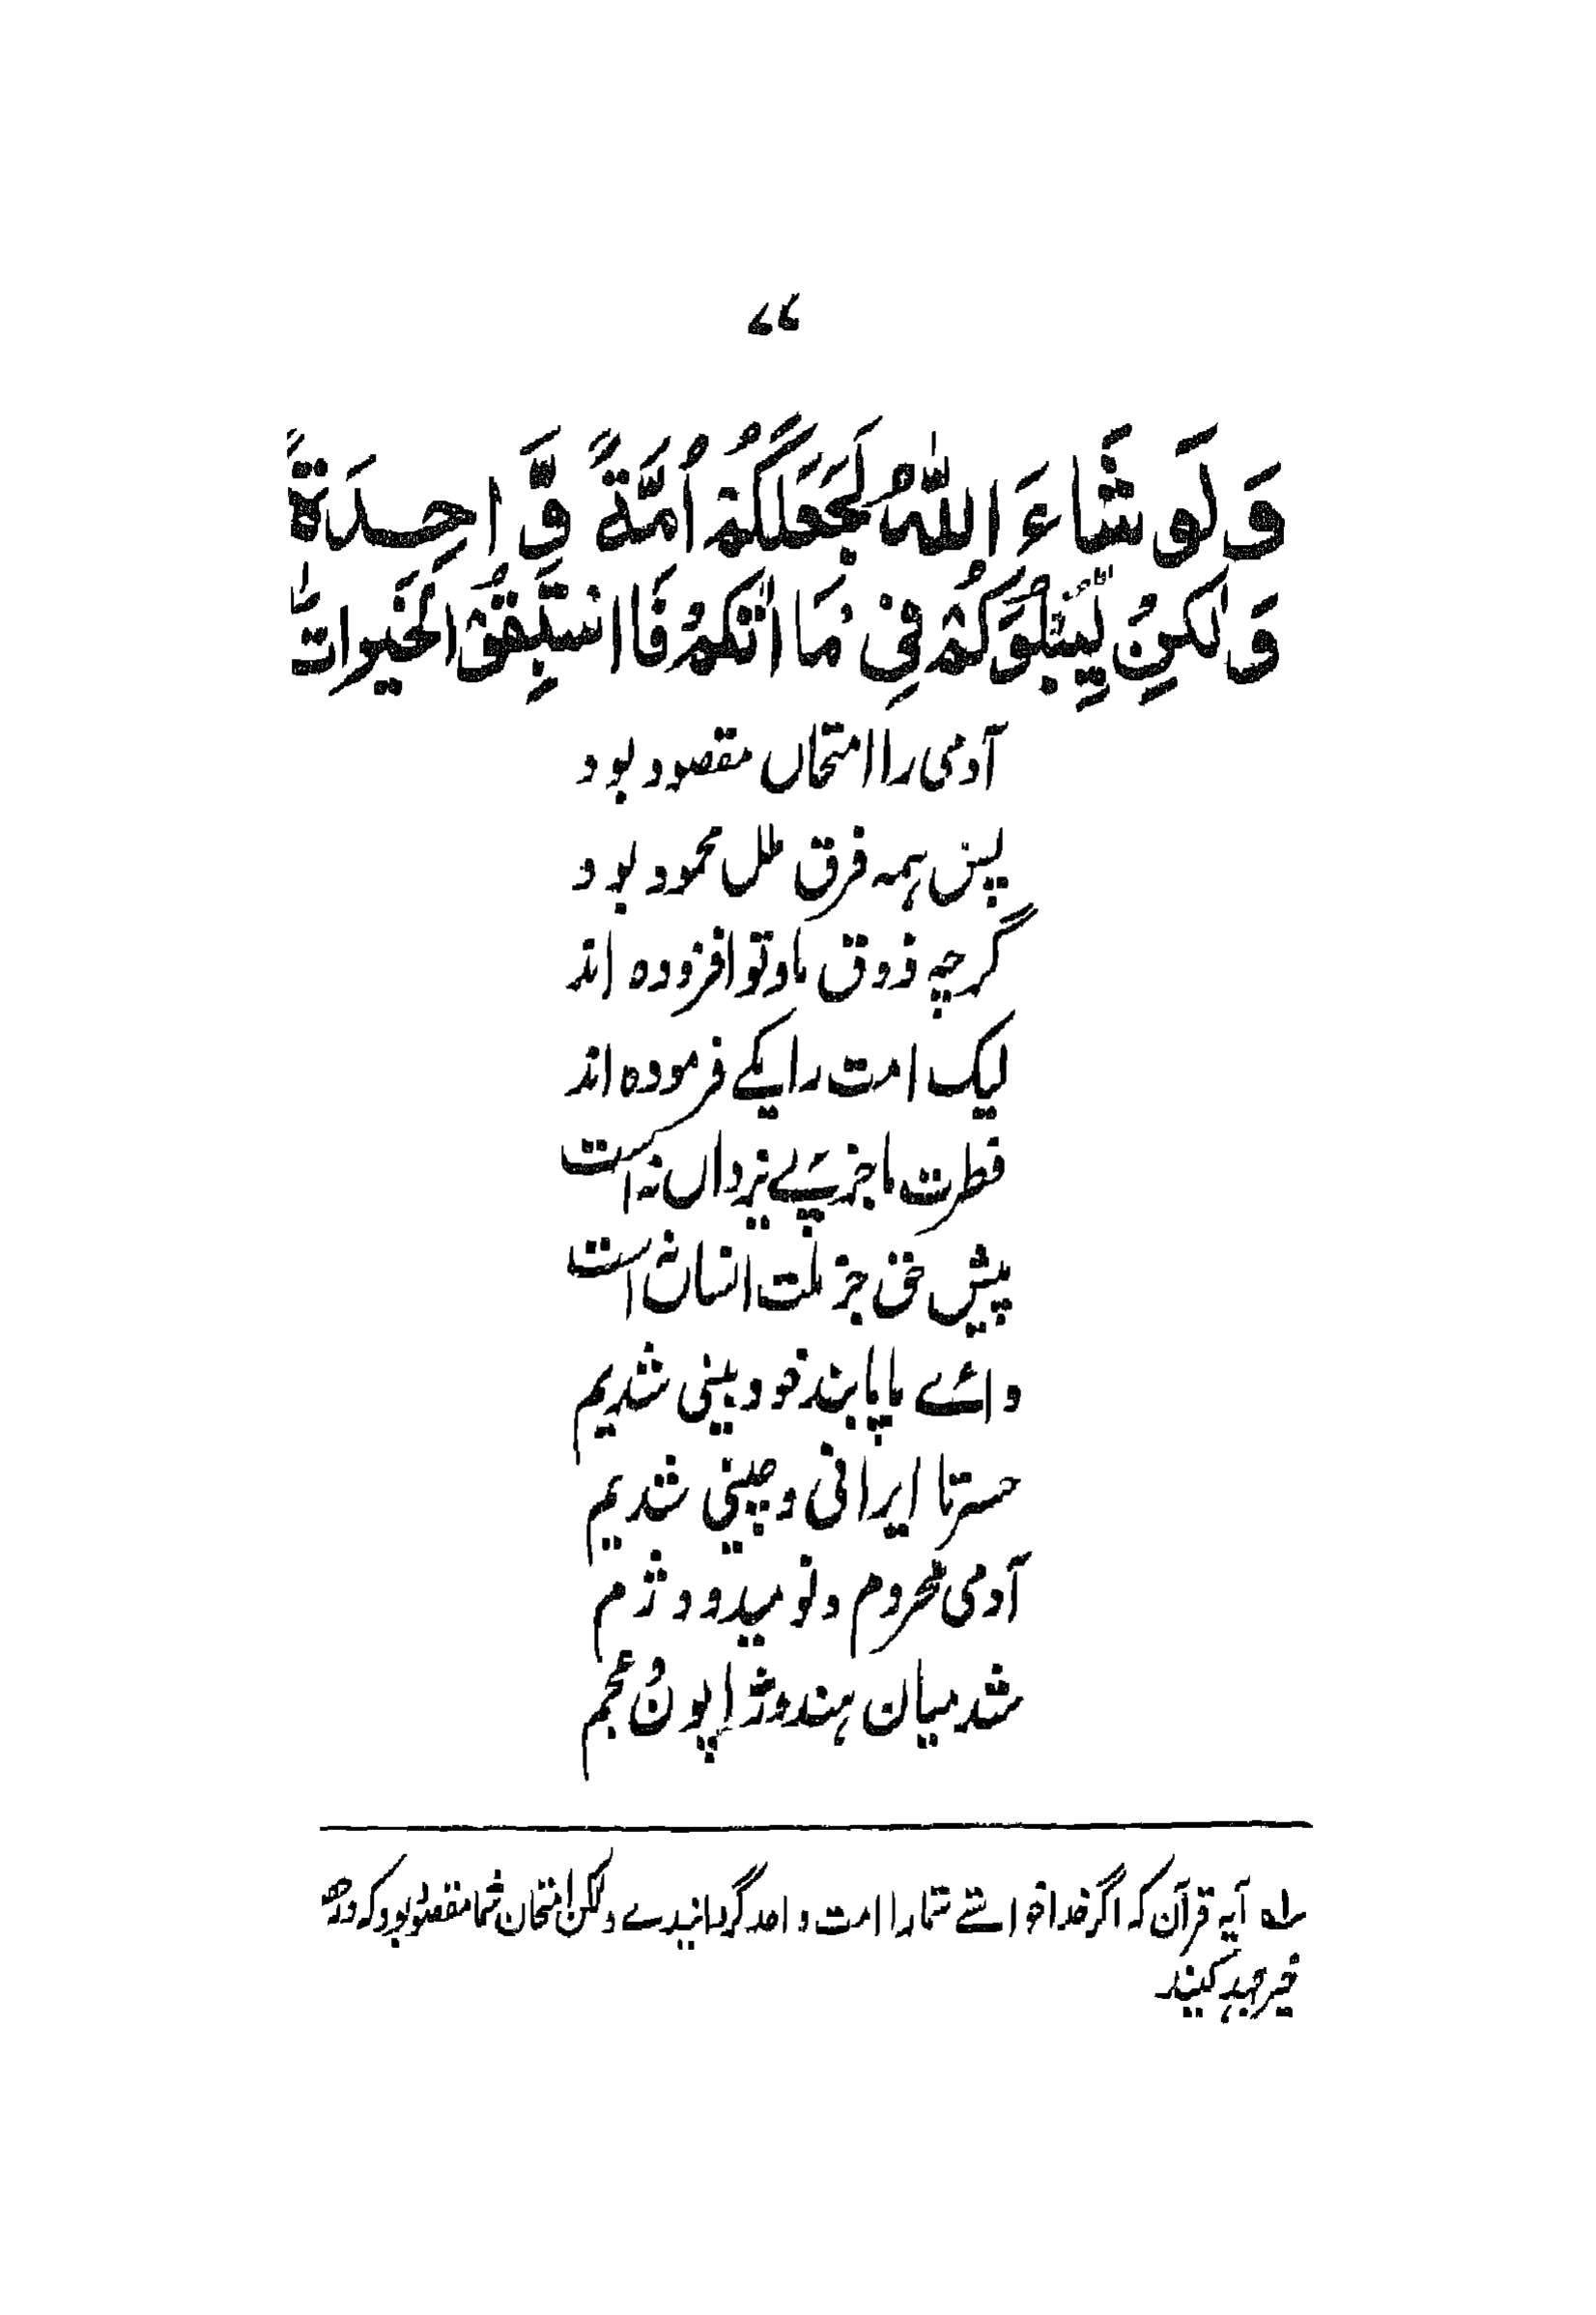 ۶۶
وَلَو شَاءَ اللّٰهُ لَجَعَلَكُمْ اُمَّةً وَّ احِدَةً
وَلٰكِنْ لِّيَبْلُوَكُمْ فِىْ مَا اٰتٰكُمْ فَا اسْتَبِقُوْ الْخَيراتِ
آدمی را امتحاں مقصود بود
پس ہمہ فرق ملل محمود بود
گرچہ ذوق ما و تو افزودہ اند
لیک امت را یکے فرمودہ اند
فطرت ما جز پئے یزداں نہ است
پیش حق جز ملت انسان نہ است
وائے ما پابند خود بینی شدیم
حسرتا ایرانی و چینی شدیم
آدمی محروم و نومید و دژم
شد میان ہند و ژاپون و عجم
؂۱ آیہ قرآن کہ اگر خدا خواستے شما را امت واحد گردانیدے ولکن امتحان شما مقصود بود کہ در
خیر جہد کنید